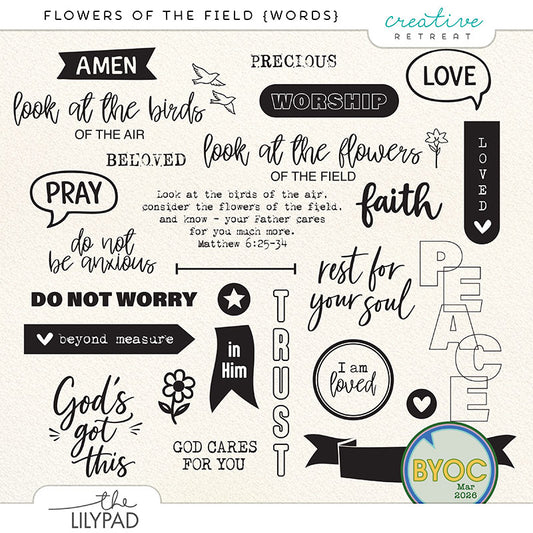 FLOWERS OF THE FIELD {WORDS}
creative
RETREAT
AMEN
PRECIOUS
LOVE
look at the birds
OF THE AIR
WORSHIP
BELOVED
look at the flowers
OF THE FIELD
LOVED
PRAY
Look at the birds of the air,
consider the flowers of the field,
and know - your Father cares
for you much more.
Matthew 6:25-34
faith
do not
be anxious
rest for
your soul
PEACE
DO NOT WORRY
TRUST
beyond measure
in
Him
I am
loved
God's
got
this
GOD CARES
FOR YOU
BYOC
Mar
2026
the
LILYPAD